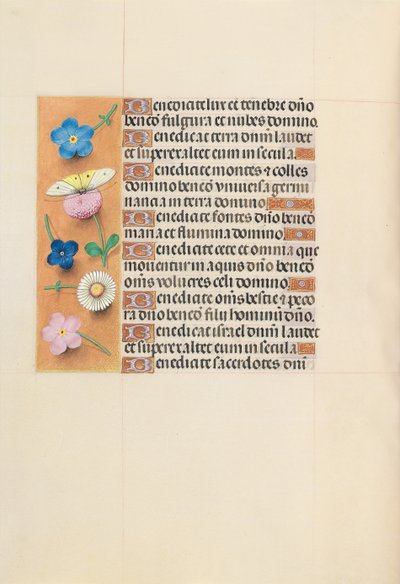 Benedicite lux et tenebre dño
benedc̃ fulgura et nubes domino.
Benedicat terra dnm̃ laudet
et superexaltet eum in secula
Benedicite montes ⁊ colles
domino benedc̃ vniuersa germi
nancia in terra domino
Benedicite fontes dño benedc̃
maria et flumina domino
Benedicite cete et omnia que
mouentur in aquis dño benedc̃
om̃s volucres celi domino
Benedicite om̃s bestie ⁊ peco
ra dño benedc̃ filij hominũ dño.
Benedicat israel dnm̃ laudet
et superexaltet eum in secula
Benedicite sacerdotes dnĩ